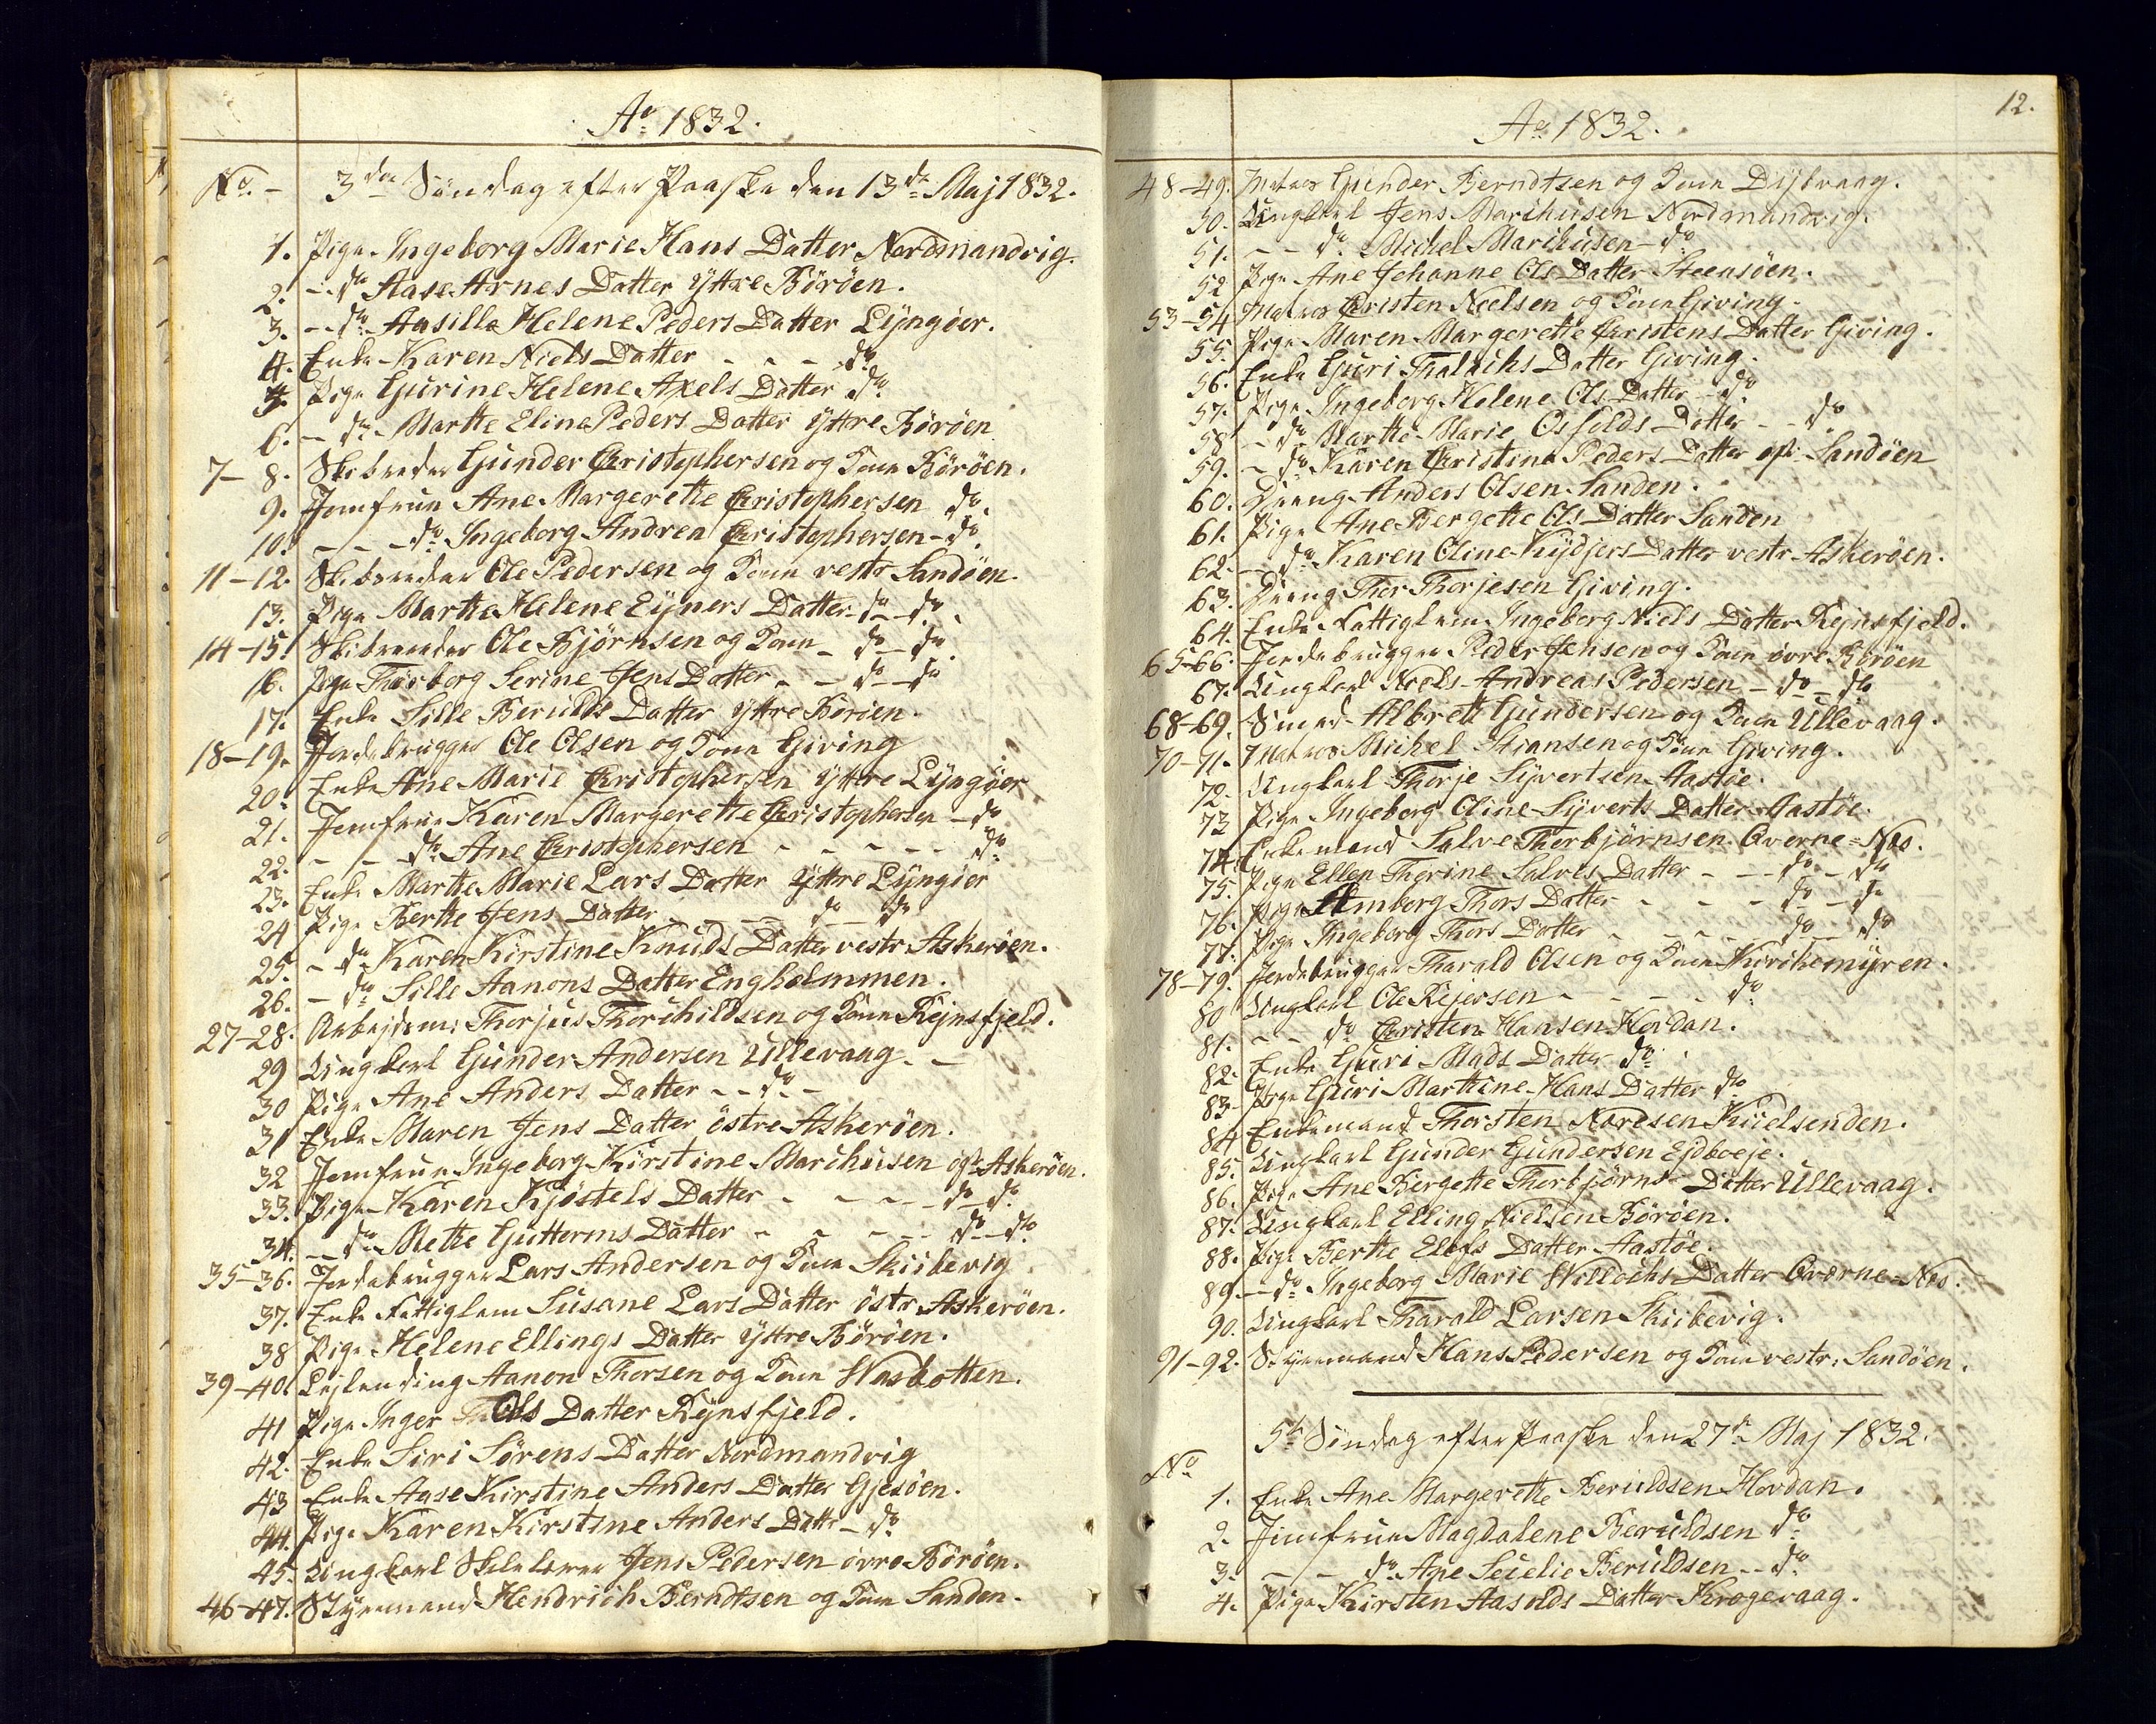 Ao 1832.
No. - 3die Søndag efter Paaske den 13de Maj 1832.
1. Pige Ingeborg Marie Hans Datter Nordmandvig.
2. - do Aase Arnes Datter Yttre Böröen.
3. - do Aasille Helene Peders Datter Lyngöer.
4. Enke Karen Niels Datter - - - do
5. Pige Gurine Helene Axels Datter do
6. - do Marthe Eline Peders Datter Yttre Böröen
7-8. Skibsreder Gunder Christophersen og Kone Böröen.
9. Jomfrue Ane Margerethe Christophersen do.
10. - - do Ingeborg Andrea Christophersen - do
11-12. Skibsreder Ole Pedersen og Kone vestr Sandöen.
13. Pige Marthe Helene Eyners Datter - do - do.
14-15. Skibsreder Ole Björnsen og Kone - do - do.
16. Pige Thorborg Serine Jens Datter - - do - do
17. Enke Sille Berulds Datter Yttre Böröen.
18-19. Jordebrugger Ole Olsen og Kone Giving
20. Enke Ane Marie Christophersen Yttre Lyngöer
21. Jomfrue Karen Margerethe Christophersen - do
22. - - do Ane Christophersen - - - - - do
23. Enke Marthe Marie Lars Datter Yttre Lyngöer
24 Pige Berthe Jens Datter - - - - do - do
25. - do Karen Kirstine Knuds Datter vestr Askeröen.
26. - do Sille Aanons Datter Engholmmen.
27-28. Arbejdsm: Thorjus Thorchildsen og Kone Rejnsfjeld.
29 Ungkarl Gunder Andersen Ullevaag. -
30 Pige Ane Anders Datter - - do -
31 Enke Maren Jens Datter östre Askeröen.
32 Jomfrue Ingeborg Kirstine Marchusen östr Askeröen.
33. Pige Karen Kjöstels Datter - - - - do - do
34. - do Mette Guttorms Datter - - - - do - do
35-36. Jordebrugger Lars Andersen og Kone Skiibevig
37. Enke Fattiglem Susane Lars Datter östr Askeröen.
38 Pige Helene Ellings Datter Yttre Böröen.
39-40. Lejlending Aanon Thorsen og Kone Wasbotten.
41 Pige Inger Ols Datter Rejnsfjeld.
42. Enke Siri Sörens Datter Nordmandvig
43 Enke Aase Kirstine Anders Datter Gjesöen.
44. Pige Karen Kirstine Anders Dattr - do
45. Ungkarl Skolelærer Jens Pedersen övre Böröen.
46-47. Styrmand Hendrich Berndtsen og Kone Sanden.
12.
Ao 1832.
48-49. Matros Gunder Berndtsen og Kone Dybvaag.
50. Ungkarl Jens Marchusen Nordmandvig.
51. - - do Michel Marchusen - do
52 Pige Ane Johanne Ols Datter Steensöen.
53-54 Matros Christen Nielsen og Kone Giving.
55. Pige Maren Margerethe Christens Datter Giving.
56. Enke Guri Thalachs Datter Giving.
57. Pige Ingeborg Helene Ols Datter - do
58 - do Marthe Marie Osfolds Datter - - do
59. - do Karen Christine Peders Datter östr Sandöen
60. Dreng Anders Olsen Sanden.
61. Pige Ane Bergette Ols Datter Sanden
62. - do Karen Oline Kydjers Datter vestr Askeröen.
63. Dreng Thor Thorjesen Giving.
64. Enke Fattiglem Ingeborg Niels Datter Rejnsfjeld.
65-66. Jordebrugger Peder Jensen og Kone övre Böröen
67. Ungkarl Niels Andreas Pedersen - do - do
68-69. Smed Albrett Gundersen og Kone Ullevaag.
70-71. Matros Michel Stiansen og Kone Giving.
72. Ungkarl Thorje Syvertsen Aastöe.
73 Pige Ingeborg Oline Syverts Datter Aastöe.
74. Enkemand Salve Thorbjörnsen Qværne-Næs.
75. Pige Ellen Thorine Salves Datter - - - do - do
76. Pige Amborg Thors Datter - - - do - do
77. Pige Ingeborg Thors Datter - - - - do - do
78-79. Jordebrugger Tharald Olsen og Kone Kirckemyren.
80 Ungkarl Ole Rejersen - - - - do
81. - - do Christen Hansen Hovdan.
82. Enke Guri Mads Datter do
83. Pige Guri Marthine Hans Datter do
84 Enkemand Thorsten Noresen Kiielsenden.
85. Ungkarl Gunder Gundersen Ejdboeje.
86. Pige Ane Bergette Thorbjörns Datter Ullevaag.
87. Ungkarl Elling Nielsen Böröen.
88. Pige Berthe Elens Datter Aastöe.
89. - do Ingeborg Marie Willochs Datter Qværne-Næs.
90. Ungkarl Tharald Larsen Skiibevig.
91-92. Styrmand Hans Pedersen og Kone vestr: Sandöen.
5te Søndag efter Paaske den 27de Maj 1832.
No
1. Enke Ane Margerethe Beruldsen Hovdan.
2. Jomfrue Magdalene Beruldsen do
3. - - do Ane Secelie Beruldsen - - do
4. Pige Kirsten Aasolds Datter Krogevaag.